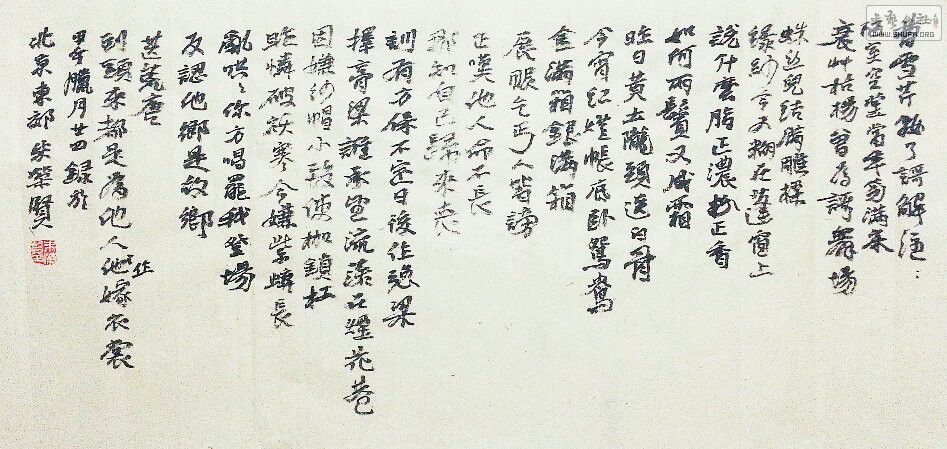 曹雪芹好了謌解注：
陋室空堂當年笏滿床
衰艸枯楊曾為謌舞場
蛛丝兒结滿雕樑
绿紗今又糊在蓬窗上
説什麽脂正濃粉正香
如何兩鬢又成霜
昨日黄土隴頭送白骨
今宵红燈帳底卧鴛鴦
金滿箱銀滿箱
展眼乞丐人皆謗
正嘆他人命不長
那知自己歸来丧
訓有方保不定日後作强梁
擇膏粱誰承望流落在煙花巷
因嫌紗帽小致使枷鎖杠
昨憐破袄寒今嫌紫蟒長
亂哄〻你方唱罷我登場
反認他鄉是故鄉
甚荒唐
到頭来都是為他人作嫁衣裳
甲午臘月廿四録於
北京東郊 賢
WWW.SHUFA.ORG